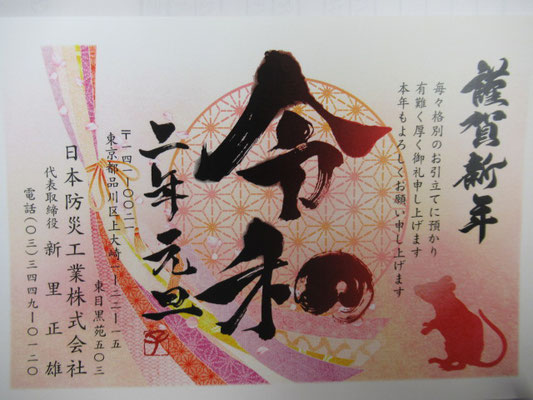 謹賀新年
毎々格別のお引立てに預かり
有難く厚く御礼申し上げます
本年もよろしくお願い申し上げます
令和
二年 元旦
〒一四一‐〇〇二一
東京都品川区上大崎二‐二二‐一五
東目黒苑五〇三
日本防災工業株式会社
代表取締役 新里正雄
電話(〇三)三四四九‐〇一二〇
子